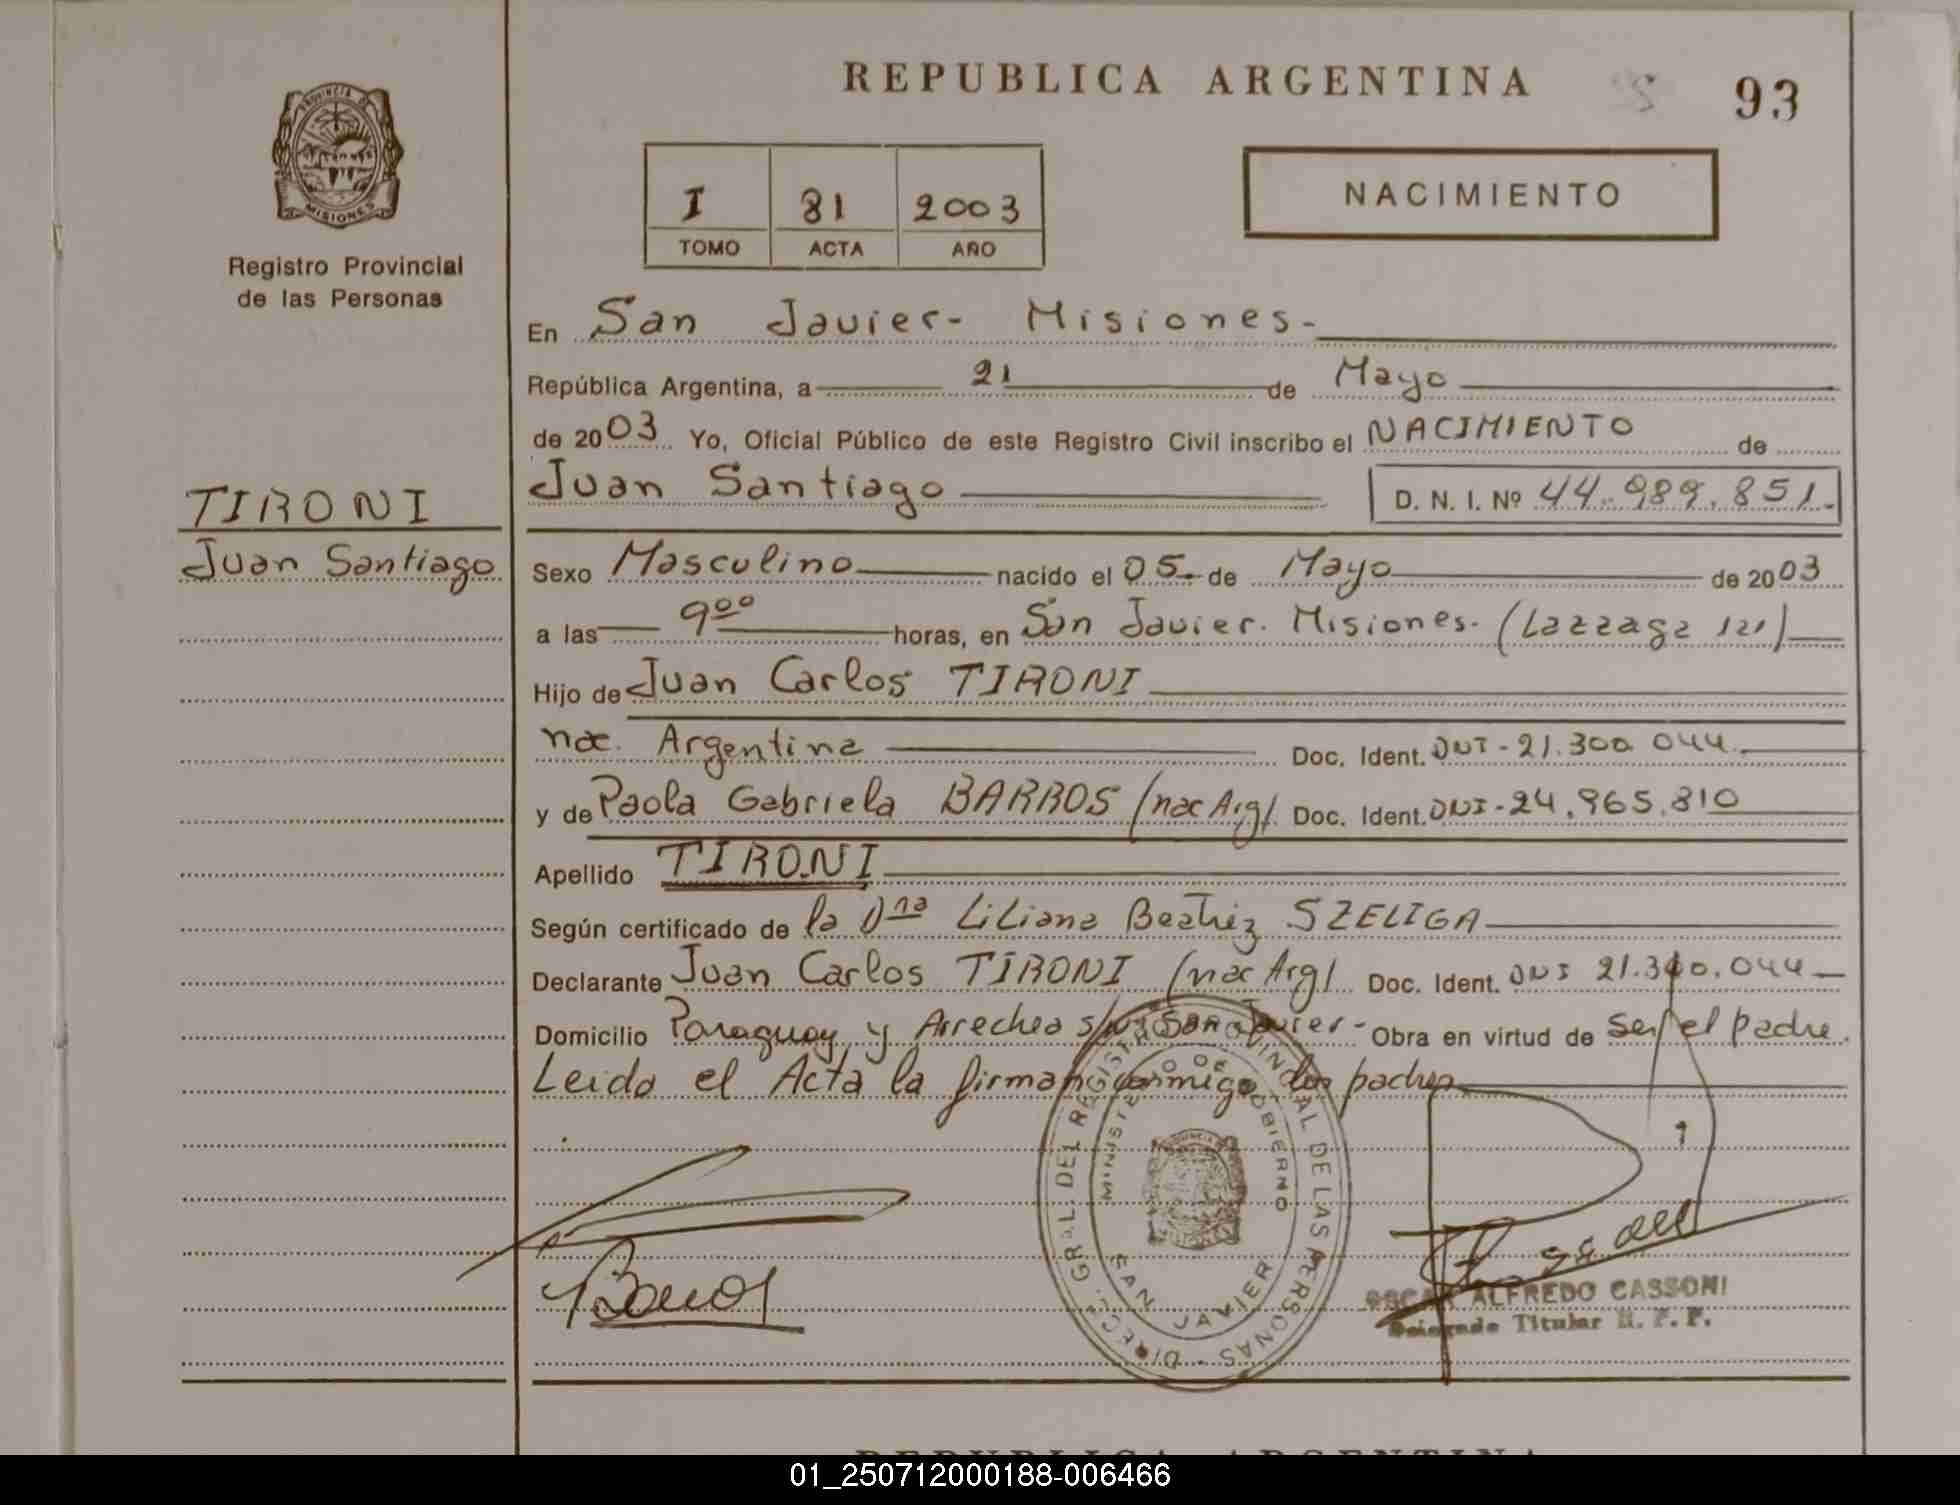 REPUBLICA ARGENTINA
93
PROVINCIA DE
MISIONES
Registro Provincial
de las Personas
I 81 2003
TOMO ACTA AÑO
NACIMIENTO
En San Javier- Misiones-
República Argentina, a 21 de Mayo
de 2003 Yo, Oficial Público de este Registro Civil inscribo el NACIMIENTO de
Juan Santiago D. N. I. Nº 44.989.851.-
TIRONI
Juan Santiago
Sexo Masculino nacido el 05- de Mayo de 2003
a las 9⁰⁰ horas, en San Javier. Misiones. (Lazzaga 121)
Hijo de Juan Carlos TIRONI
nac. Argentina Doc. Ident. DNI-21.300.044
y de Paola Gabriela BARROS (nac Arg) Doc. Ident. DNI-24.965.810
Apellido TIRONI
Según certificado de la Dra Liliana Beatriz SZELIGA
Declarante Juan Carlos TIRONI (nac Arg) Doc. Ident. DNI 21.300.044
Domicilio Paraguay y Arrechea s/nº San Javier- Obra en virtud de ser el padre.
Leido el Acta la firman conmigo los padres
DIRECC. GRAL. DEL REGISTRO PROVINCIAL DE LAS PERSONAS
MINISTERIO DE GOBIERNO
SAN JAVIER
Barros
OSCAR ALFREDO CASSONI
Delegado Titular R. P. P.
REPUBLICA ARGENTINA
01_250712000188-006466